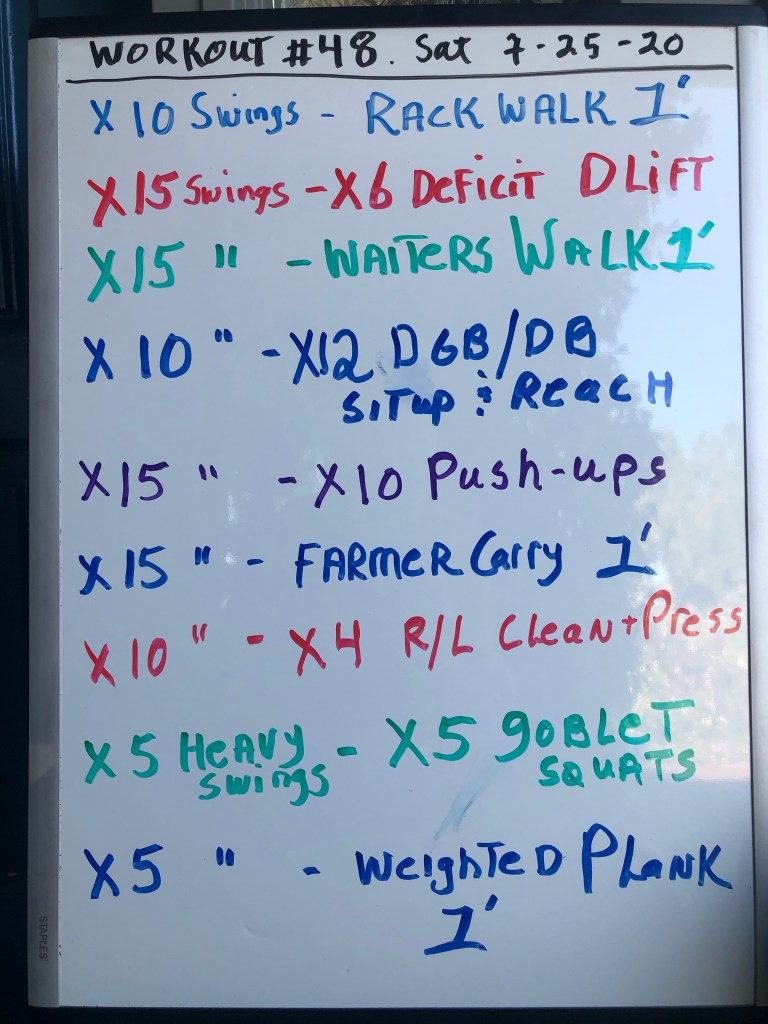 WORKOUT #48. Sat 7-25-20
X10 Swings - RACK WALK 1'
X15 Swings - X6 DeFiciT DLiFT
X15 " - WAITERS WALK 1'
X10 " - X12 DGB/DB
SITup & ReacH
X15 " - X10 Push-ups
X15 " - FARMER Carry 1'
X10 " - X4 R/L Clean+Press
X5 HeAvy - X5 goBLeT
swings SQUATS
X5 " - WeighTeD PLANK
1'
STAPLES